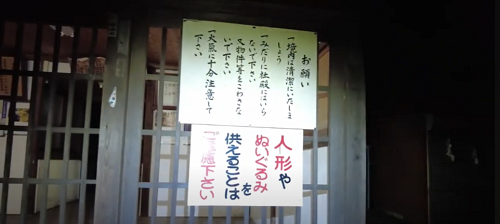 お願い
一境内は清潔にいたしま
しょう
一みだりに社殿にはいら
ないで下さい
又物件等をこわさな
いで下さい
一火気に十分注意して
下さい
人形や
ぬいぐるみ
を
供えることは
ご遠慮下さい